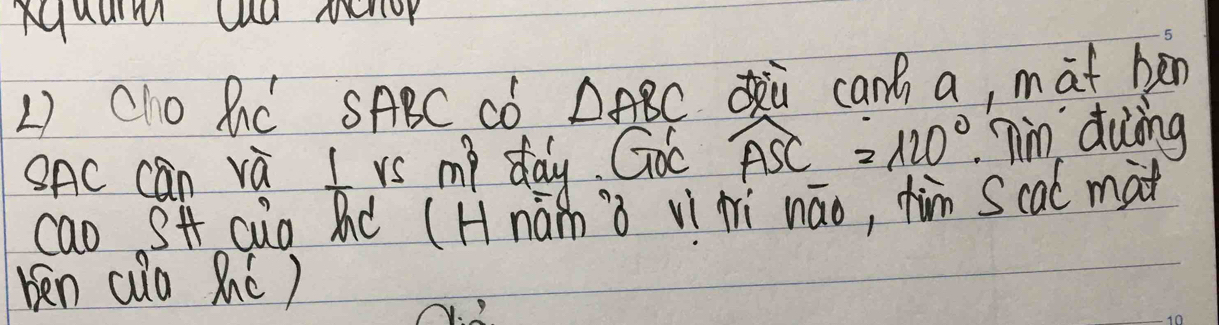 xquanh của hchóp
5
2) Cho hc SABC có ΔABC đều cạnh a, mặt bên
SAC cân và ⊥ vs mp đáy. Góc ASC = 120°. Tìm đường
cao SH của hc (H nằm ở vị trí nào, tìm S các mặt
bên của hc)
Giải
10